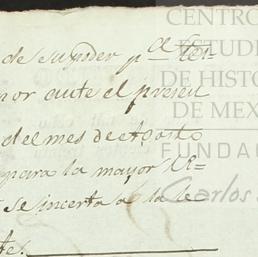 de su poder pa. Tes-
nor ante el presen
del mes de Agosto
para la mayor se-
se incerta a la le
te.
CENTRO
ESTUDI
DE HISTO
DE MEX
FUNDAC
Carlos